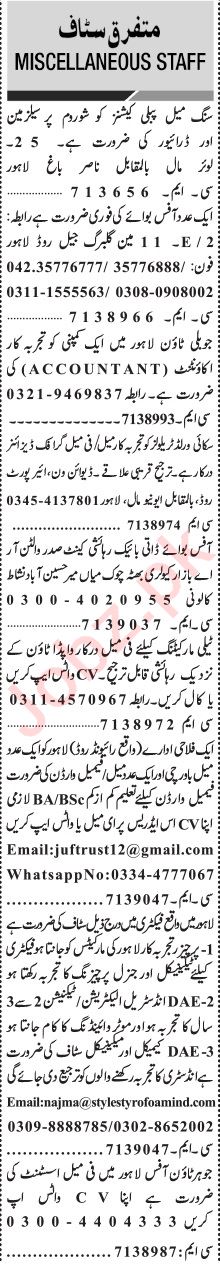 متفرق سٹاف
MISCELLANEOUS STAFF
سنگ میل پبلی کیشنز کو شوروم پر سیلزمین
اور ڈرائیور کی ضرورت ہے۔ 25۔
لوئر مال بالمقابل ناصر باغ لاہور
سی۔ ایم۔ 713656
ایک عدد آفس بوائے کی فوری ضرورت ہے رابطہ:
E/2۔ 11 مین گلبرگ جیل روڈ لاہور
فون: /35776888 /042.35776777
0311-1555563/ 0308-0908002
سی۔ ایم۔ 7138966
جوبلی ٹاؤن لاہور میں ایک کمپنی کو تجربہ کار
اکاؤنٹنٹ (ACCOUNTANT) کی
ضرورت ہے۔ رابطہ 0321-9469837
سی ایم۔7138993
سکائی ورلڈ ٹریولز کو تجربہ کار میل/ فی میل گرافک ڈیزائنر
درکار ہے۔ ترجیح قریبی علاقے۔ ڈیوائن ون، ائیرپورٹ
روڈ، بالمقابل ایونیو مال، لاہور 0345-4137801
سی ایم 7138974
آفس بوائے ذاتی بائیک رہائشی کینٹ صدر والٹن آر
اے بازار کیولری بھٹہ چوک میاں میر حسین آباد نشاط
کالونی 0300-4020955
سی۔ ایم۔ 7139037
ٹیلی مارکیٹنگ کیلئے فی میل درکار واپڈا ٹاؤن کے
نزدیک رہائش قابل ترجیح۔ CV واٹس ایپ کریں
یا کال کریں۔ رابطہ 0311-4570967
سی ایم 7138972
ایک فلاحی ادارے (واقع رائیونڈ روڈ) لاہور کو ایک عدد
میل باورچی اور ایک عدد میل/ فیمیل وارڈن کی ضرورت
فیمیل وارڈن کیلئے تعلیم کم از کم BA/BSc لازمی
اپنا CV اس ایڈریس پر ای میل یا واٹس ایپ کریں
Email:juftrust12@gmail.com
WhatsappNo:0334-4777067
سی۔ ایم۔7139047
لاہور میں واقع فیکٹری میں درج ذیل سٹاف کی ضرورت ہے
1- پرچیزر تجربہ کار لاہور کی مارکیٹس کو جانتا ہو فیکٹری
کیلئے ٹیکنیکل اور جنرل پرچیزنگ کا تجربہ رکھتا ہو
2-DAE انڈسٹریل الیکٹریشن/ ٹیکنیشن 2 سے 3
سال کا تجربہ ہو اور موٹر وائنڈنگ کا کام جانتا ہو
3-DAE کیمیکل اور میکینیکل سٹاف کی ضرورت
ہے انڈسٹری کا تجربہ رکھنے والوں کو ترجیح دی جائے گی
Email:najma@stylestyrofoamind.com
0309-8888785/0302-8652002
سی۔ ایم۔7139047
جوہر ٹاؤن آفس لاہور میں فی میل اسسٹنٹ کی
ضرورت ہے اپنا CV واٹس اپ
کریں 0300-4404333
سی ایم: 7138987